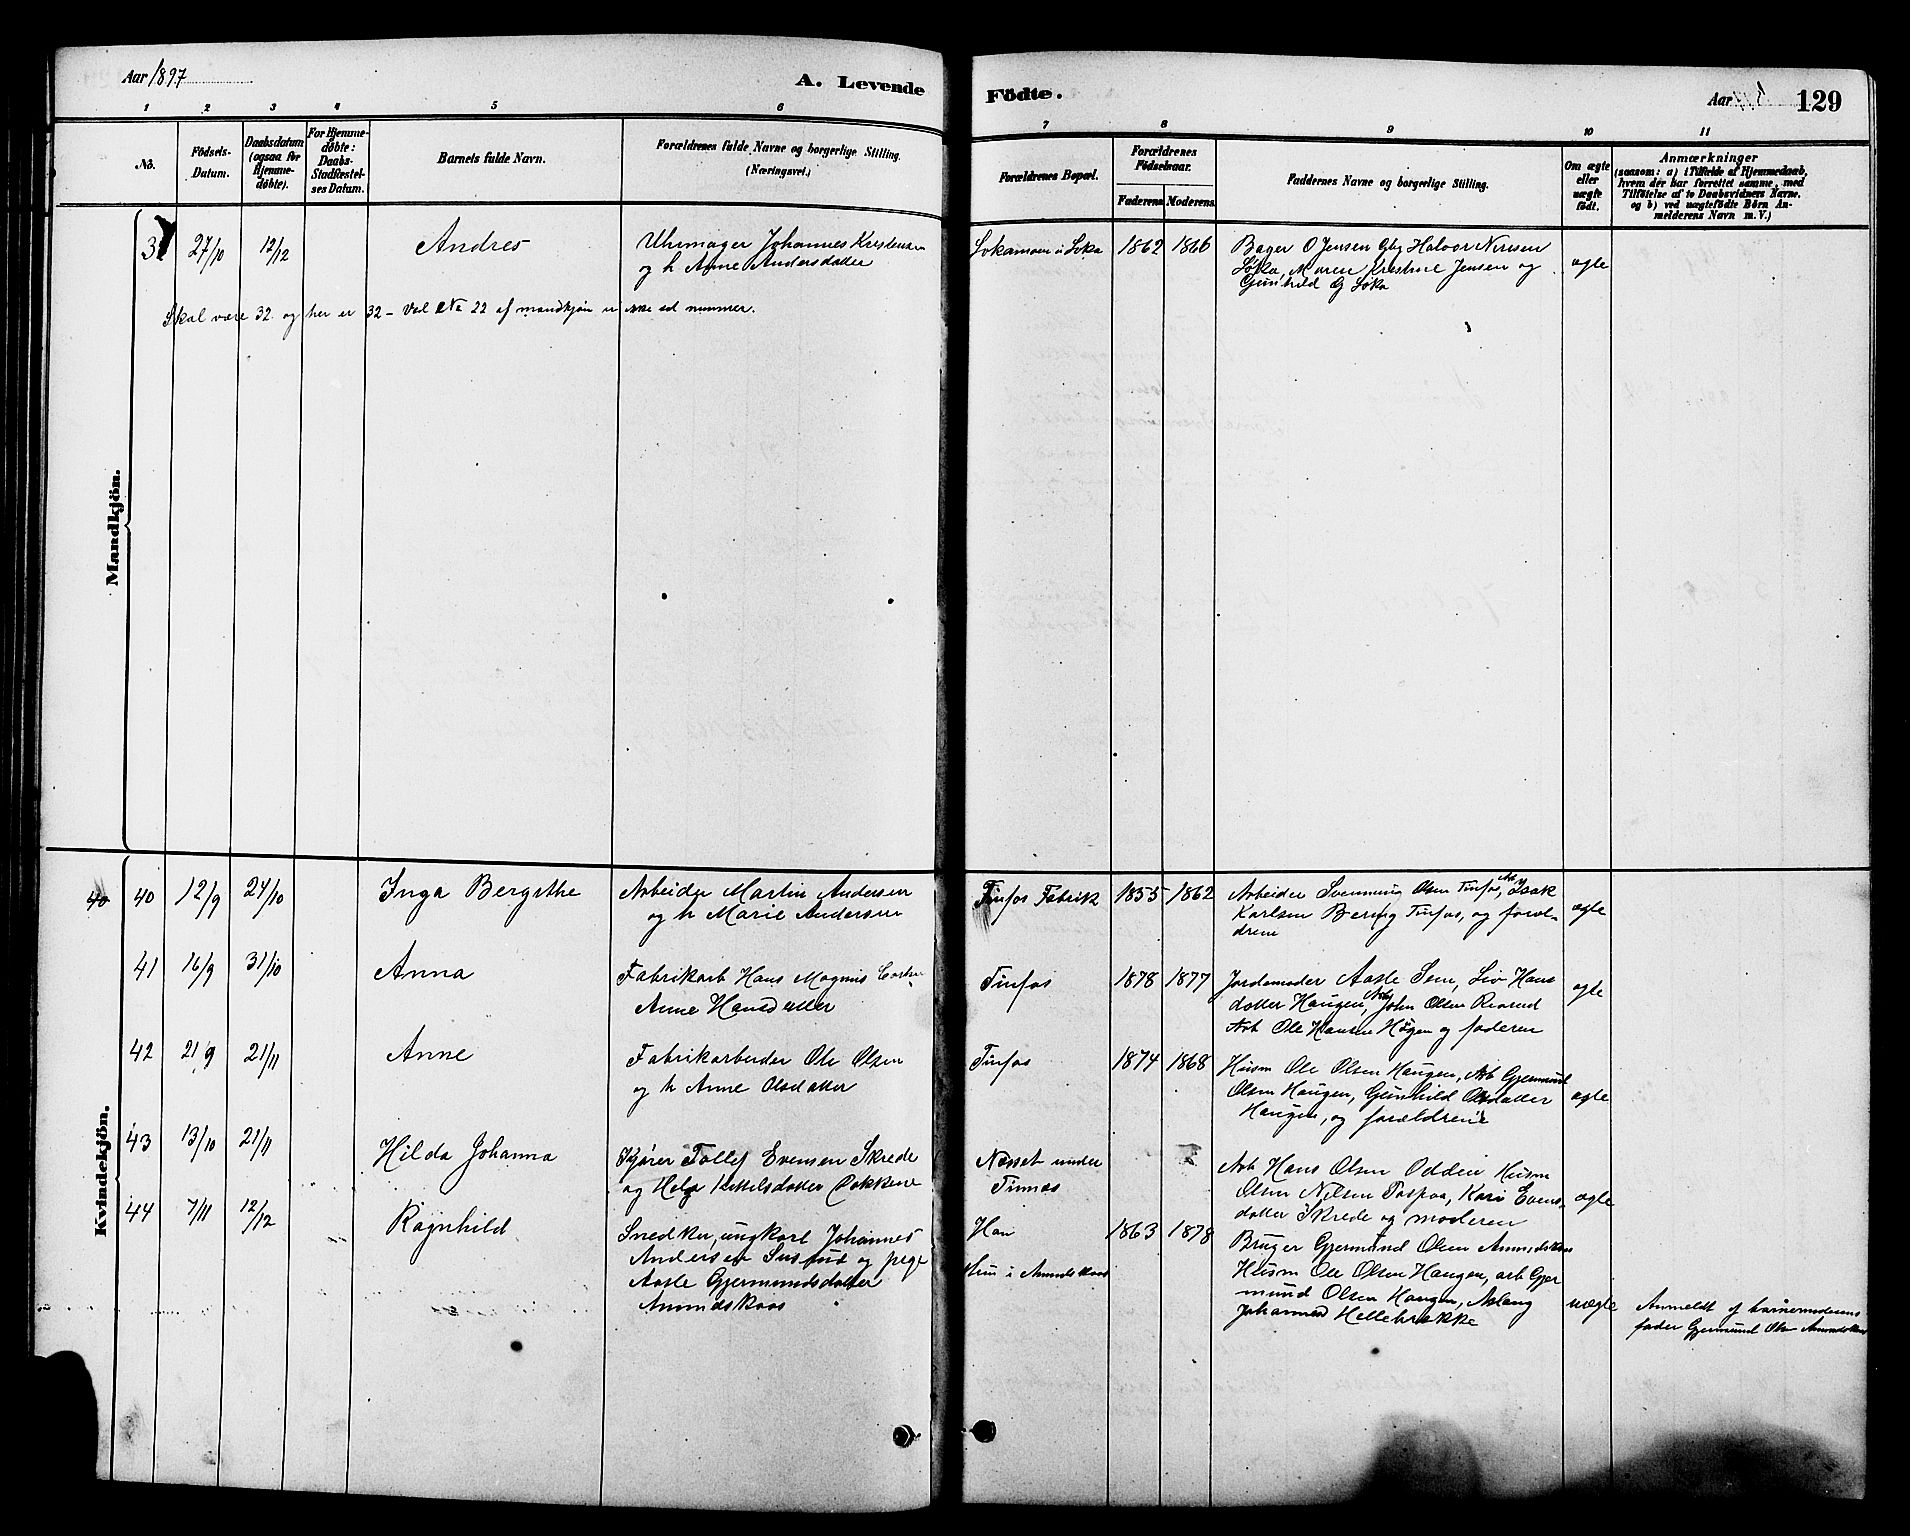 Aar 1897
A. Levende
Fødte.
Aar
129
1 2 3 4 5 6
7 8 9 10 11
No.
Födsels-
Datum.
Daabsdatum
(ogsaa for
Hjemme-
døbte).
For Hjemme-
døbte:
Daabs-
Stadfæstel-
ses Datum.
Barnets fulde Navn.
Forældrenes fulde Navne og borgerlige Stilling.
(Næringsvei.)
Forældrenes Bopæl.
Forældrenes
Födselsaar.
Faderens
Moderens
Faddernes Navne og borgerlige Stilling.
Om ægte
eller
uægte
født.
Anmærkninger
(saasom: a) i Tilfælde af Hjemmedaab,
hvem der har forrettet samme, med
Tilføielse af to Daabsvidners Navne.
og b) ved uægtefødte Börn An-
melderens Navn m. V.)
Mandkjön.
27/10 12/12 Andres
Uhrmager Johannes Kristensen
og h Anne Andersdatter
1862 1866
Bager O Jensen Gbg Halvor
Maren Kristine Jensen og
Gunhild
ægte
Skal være 32 og her er 32 - Ved No 22 af mandkjøn er ikke ad nummer.
Kvindekjön.
40 40 12/9 24/10 Inga Bergithe
Arbeider Martin Andersen
og h Marie Andersen
Tinfos Fabrik 1855 1862
Arbeider Svennung Olsen Tinfos, Arb Isak
Karlsen Bering Tinfos, og foræl-
drene
ægte
41 16/9 31/10 Anna
Fabrikarb Hans Magnus
Anne Hansdatter
Tinfos 1878 1877
Jordemoder Aasle Sem, Liv Hans
datter Haugen, Arb John Olsen
Arb Ole Hansen Haugen og faderen
ægte
42 21/9 21/11 Anne
Fabrikarbeider Ole Olsen
og h Anne Olsdatter
Tinfos 1874 1868
Husm Ole Olsen Haugen, Arb Gjermund
Olsen Haugen, Gunhild Olsdatter
Haugen, og forældrene
ægte
43 13/10 21/11 Hilda Johanna
Kjører Tollef Evensen Skrede
og Helga Kittelsdatter
Næsset under
Tinnæs
Arb Hans Olsen Odden Husm
Olsen Nilsen Tospaa, Kari Evens-
datter Skrede og moderen
ægte
44 7/11 12/12 Ragnhild
Snedker, ungkarl Johannes
Andersen og pige
Aasle Gjermundsdatter
Amundskaas
Han
Hun i Amundskaas
1863 1878
Bruger Gjermund Olsen Amundskaas
Husm Ole Olsen Haugen, arb Gjer
mund Olsen Haugen, Aslaug
Johannesd Hellebrække
uægte
Anmeldt af barnemoderens
fader Gjermund Olsen Amundskaas